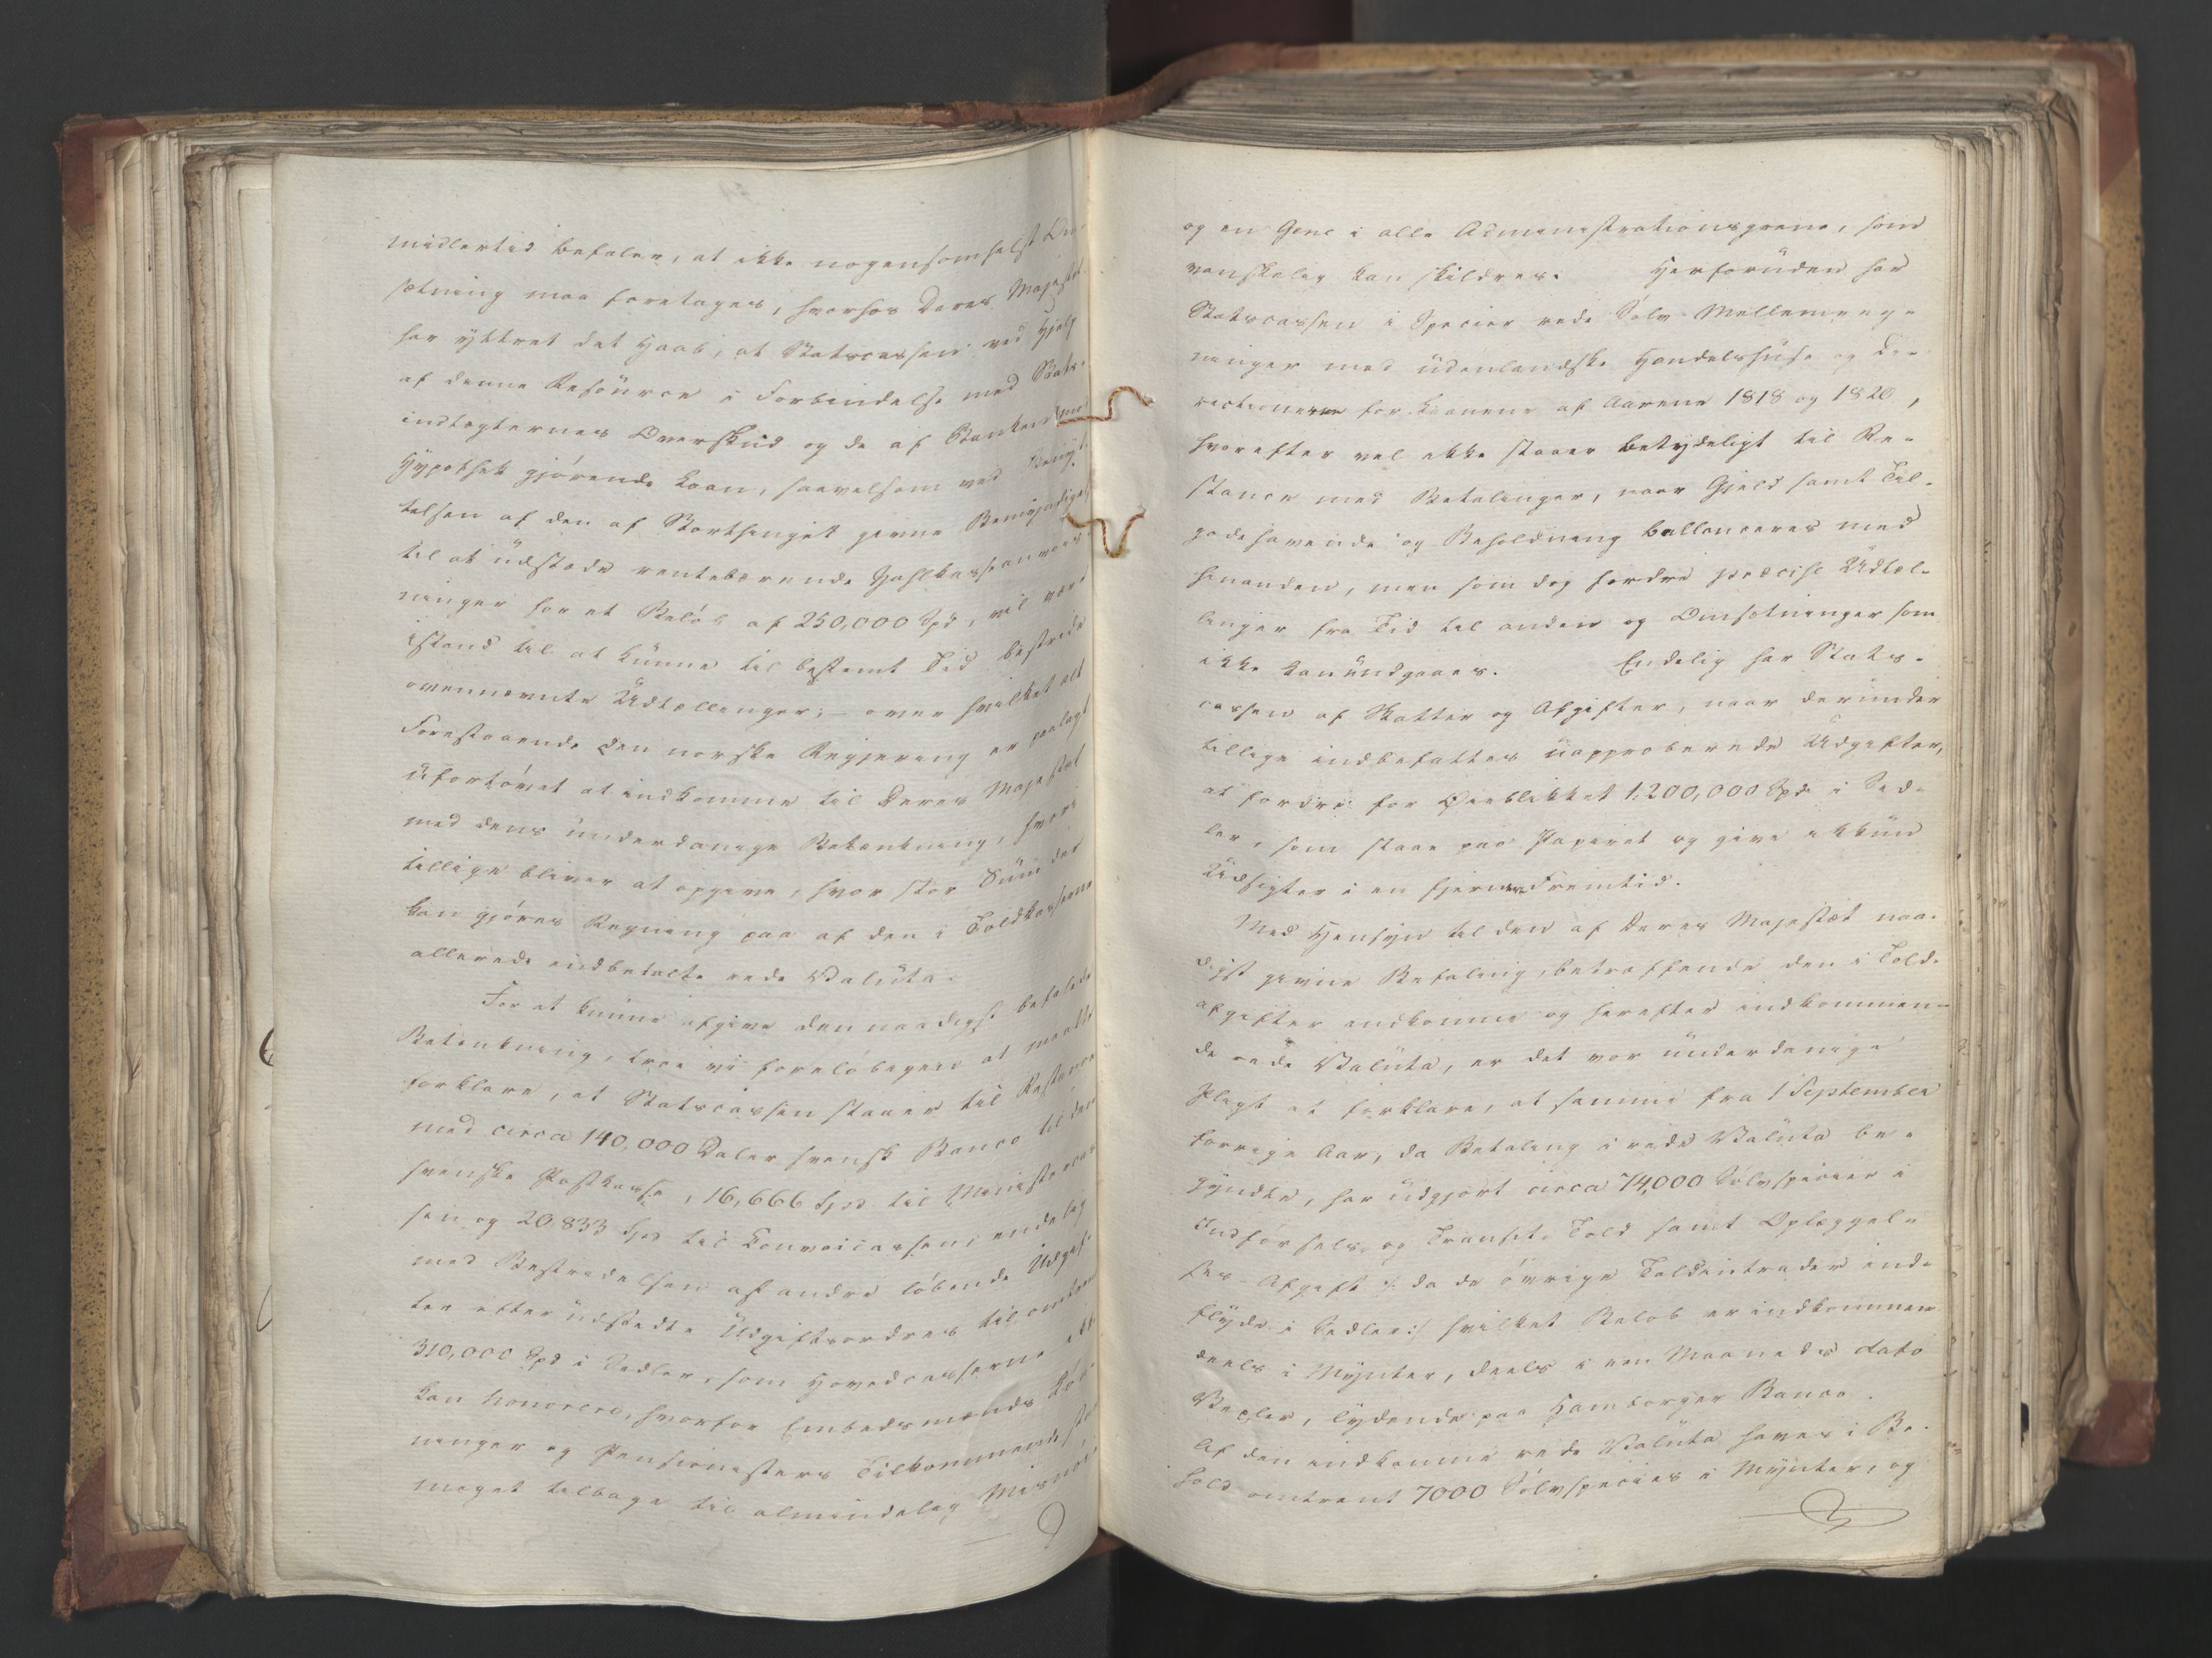 midlertid befalen, at ikke nogensomhelst Om-
sætning maa foretages, hvorhos Deres Majestæt
har ÿttret det Haab, at Statscassen ved Hjelp
af denne Resource i Forbindelse med Stats-
indtægternes Overskud og de af Banken mod
Hÿpothek gjørende Laan, saavelsom ved Benÿt-
telsen af den af Storthinget givne Bemÿndigelse
til at udstæde rentebærende Zahlkasseanviis-
ninger for et Beløb af 250,000 Spd, vil være
istand til at kunne til bestemt Tid bestride
ovennævnte Udtællinger; over hvilket alt
Forestaaende den norske Regjering er paalagt
ufortøvet at indkomme til Deres Majestæt
med dens underdanige Betænkning, hvori
tillige bliver at opgive, hvor stor Sum der
kan gjøres Regning paa af den i Toldkasserne
allerede indbetalte rede Valuta.
For at kunne afgive den naadigst befalede
Betænkning, troe vi foreløbigen at maatte
forklare, at Statscassen staaer til Restance
med circa 140,000 Daler svensk Banco til den
svenske Postkasse, 16,666 Spd til Ministercas-
sen og 20.833 Spd til Convoicassen, endelig
med Bestridelsen af andre løbende Udgif-
ter efter udstedte Udgiftsordres til omtrent
310,000 Spd i Sedler, som Hovedcasserne ikke
kan honorere, hvorfor Embedsmænds Løn-
ninger og Pensionisters Tilkommende staa
meget tilbage til almindelig Misnøie,
og en Gene i alle Administrationsgrene, som
vanskelig kan skildres. Herforuden har
Statscassen i Specier rede Sølv Mellemreg-
ninger med udenlandske Handelshuse og Di-
rectionerne for Laanene af Aarene 1818 og 1820,
hvorefter vel ikke staaer betÿdeligt til Re-
stance med Betalinger, naar Gjeld samt Til-
godehavende og Beholdning ballanceres med
hinanden, men som dog fordre præcise Udtæl-
linger fra Tid til anden og Omsætninger som
ikke kan undgaaes. Endelig har Stats-
cassen af Skatter og Afgifter, naar derunder
tillige indbefattes uapproberede Udgifter,
at fordre for Øieblikket 1.200,000 Spd i Sed-
ler, som staae paa Papiret og give ikkun
Udsigter i en fjern Fremtid.
Med Hensÿn til den af Deres Majestæt naa-
digst givne Befaling, betræffende den i Told-
afgifter indkomne og herefter indkommen-
de rede Valuta, er det vor underdanige
Pligt at forklare, at samme fra 1 September
forrige Aar, da Betaling i rede Valuta be-
gÿndte, har udgjort circa 74,000 Sølvspecier i
Indførsels- og Transit-Told samt Oplæggel-
ses-Afgift /: da de øvrige Toldintrader ind-
flÿde i Sedler :/ hvilket Beløb er indkommen
deels i Mÿnter, deels i een Maaneds dato
Vexler, lÿdende paa Hamborger Banco.
Af den indkomne rede Valuta haves i Be-
hold omtrent 7000 Sølvspecies i Mÿnter, og